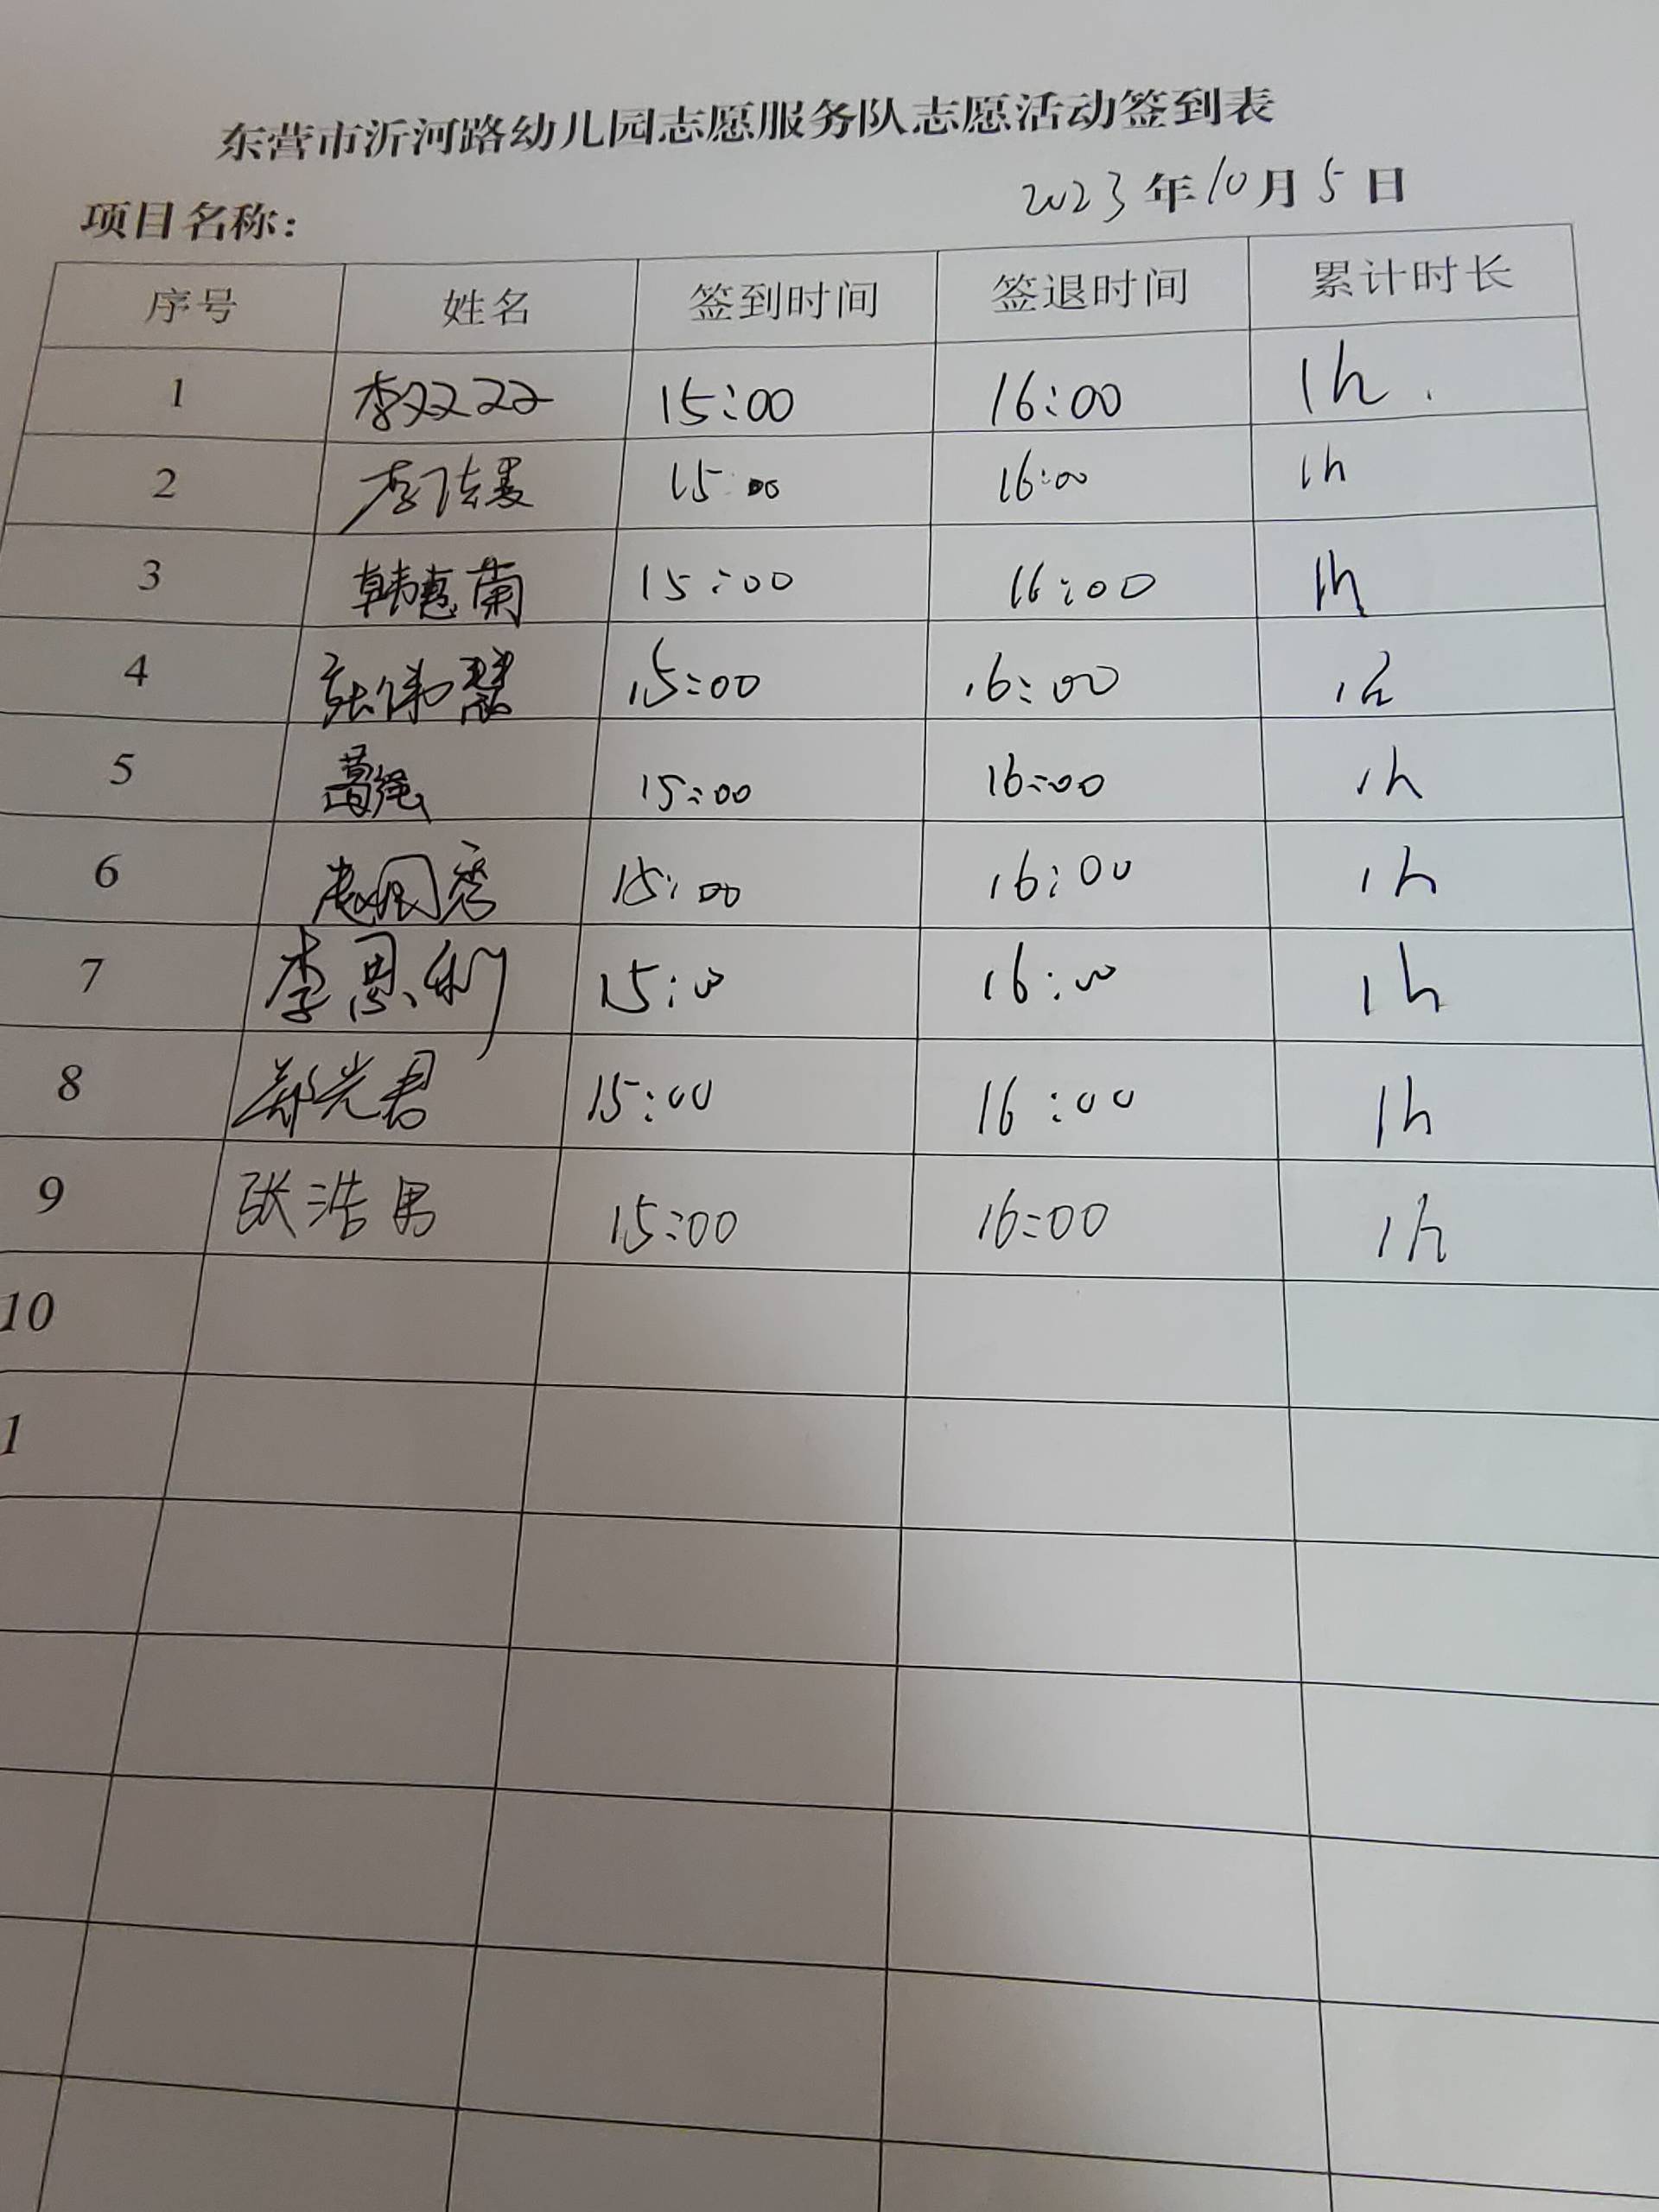 东营市沂河路幼儿园志愿服务队志愿活动签到表
2023年10月5日
项目名称:
序号 姓名 签到时间 签退时间 累计时长
1 李双双 15:00 16:00 1h.
2 李 15:00 16:00 1h
3 韩惠菊 15:00 16:00 1h
4 张伟慧 15:00 16:00 1h
5 葛强 15:00 16:00 1h
6 秀 15:00 16:00 1h
7 李思利 15:00 16:00 1h
8 郑光君 15:00 16:00 1h
9 张浩男 15:00 16:00 1h
10
1